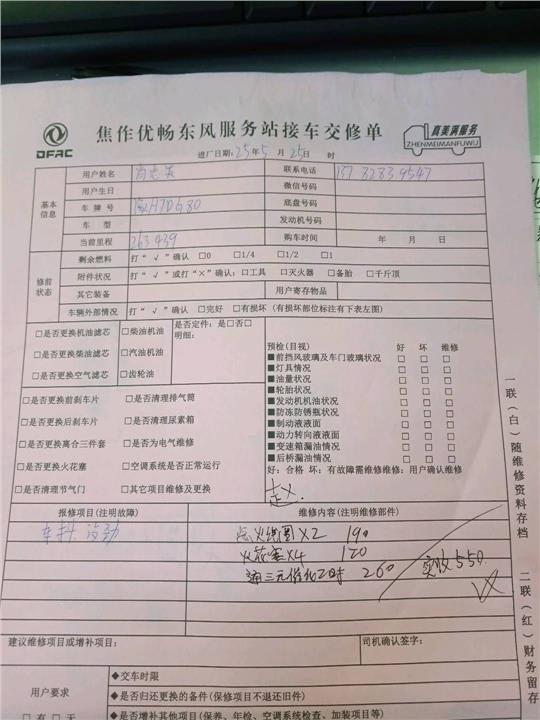 DFAC
焦作优畅东风服务站接车交修单
真美满服务
ZHENMEIMANFUWU
进厂日期:25年5月25日 时
基本信息
用户姓名 联系电话 137 8283 9547
用户生日 微信号码
车牌号 豫H7DG80 底盘号码
车型 发动机号码
当前里程 263439 购车时间 年 月 日
修前状态
剩余燃料 打“√”确认 □0 □1/4 □1/2 □1
附件状况 打“√”或打“×”确认:□工具 □灭火器 □备胎 □千斤顶
其它装备 用户寄存物品
车辆外部情况 打“√”确认 □完好 □有损坏(有损坏部位标注有下表左图)
□是否更换机油滤芯 □柴油机油 是否定件:是□否□
明细:
□是否更换柴油滤芯 □汽油机油
□是否更换空气滤芯 □齿轮油
预检(目视) 好 坏 维修
■前挡风玻璃及车门玻璃状况 □ □ □
■灯具情况 □ □ □
■油量状况 □ □ □
■轮胎状况 □ □ □
■发动机机油状况 □ □ □
■防冻防锈瓶状况 □ □ □
■制动液液面 □ □ □
■动力转向液液面 □ □ □
■变速箱漏油情况 □ □ □
■后桥漏油情况 □ □ □
好:合格 坏:有故障需维修维修:用户确认维修
□是否更换前刹车片 □是否清理排气筒
□是否更换后刹车片 □是否清理尿素箱
□是否更换离合三件套 □是否为电气维修
□是否更换火花塞 □空调系统是否正常运行
□是否清理节气门 □其它项目维修及更换
报修项目(注明故障) 维修内容(注明维修部件)
车抖 没劲 点火线圈X2 190
火花塞X4 120
通三元催化2时 260
实收550
建议维修项目或增补项目: 司机确认签字:
用户要求
□有 □无
◆交车时限
◆是否归还更换的备件(保修项目不退还旧件)
◆是否增补其他项目(保养、年检、空调系统检查、加装项目等)
一联(白)随维修资料存档
二联(红)财务留存